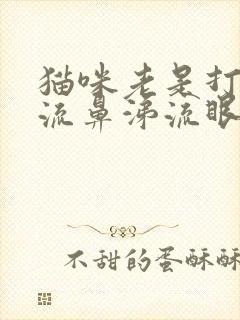 猫咪老是打
流鼻涕流眼
不甜的蛋酥酥